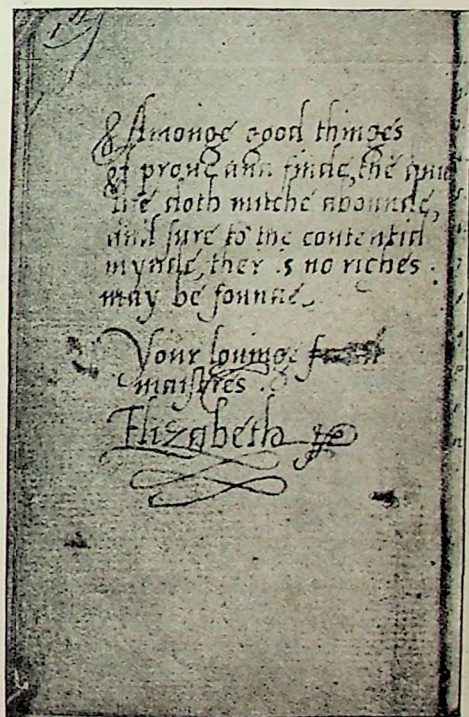 Amonge good thinges
I prove and finde, the quiet
life doth mutche abounde,
and sure to the contentid
mynde, ther is no riches
may be founde.
Your lovinge
maistres
Elizabeth